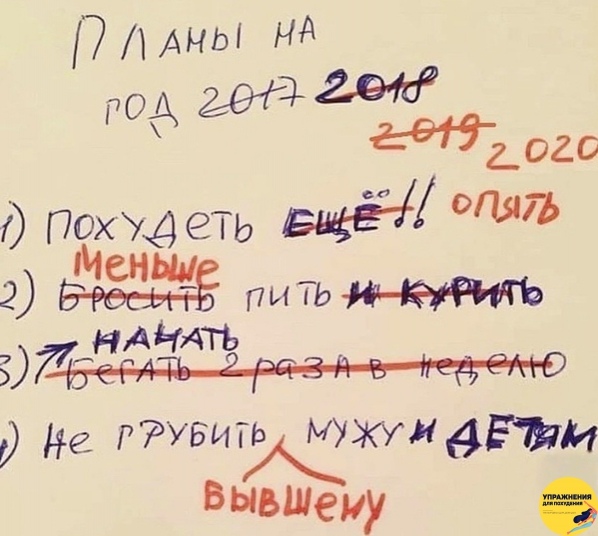 ПЛАНЫ НА
ГОД 2017 2018
2019 2020
1) ПОХУДЕТЬ ЕЩЁ!! ОПЯТЬ
МЕНЬШЕ
2) БРОСИТЬ ПИТЬ И КУРИТЬ
НАЧАТЬ
3) БЕГАТЬ 2 РАЗА В НЕДЕЛЮ
4) НЕ ГРУБИТЬ МУЖУ И ДЕТЯМ
БЫВШЕМУ
УПРАЖНЕНИЯ
ДЛЯ ПОХУДЕНИЯ